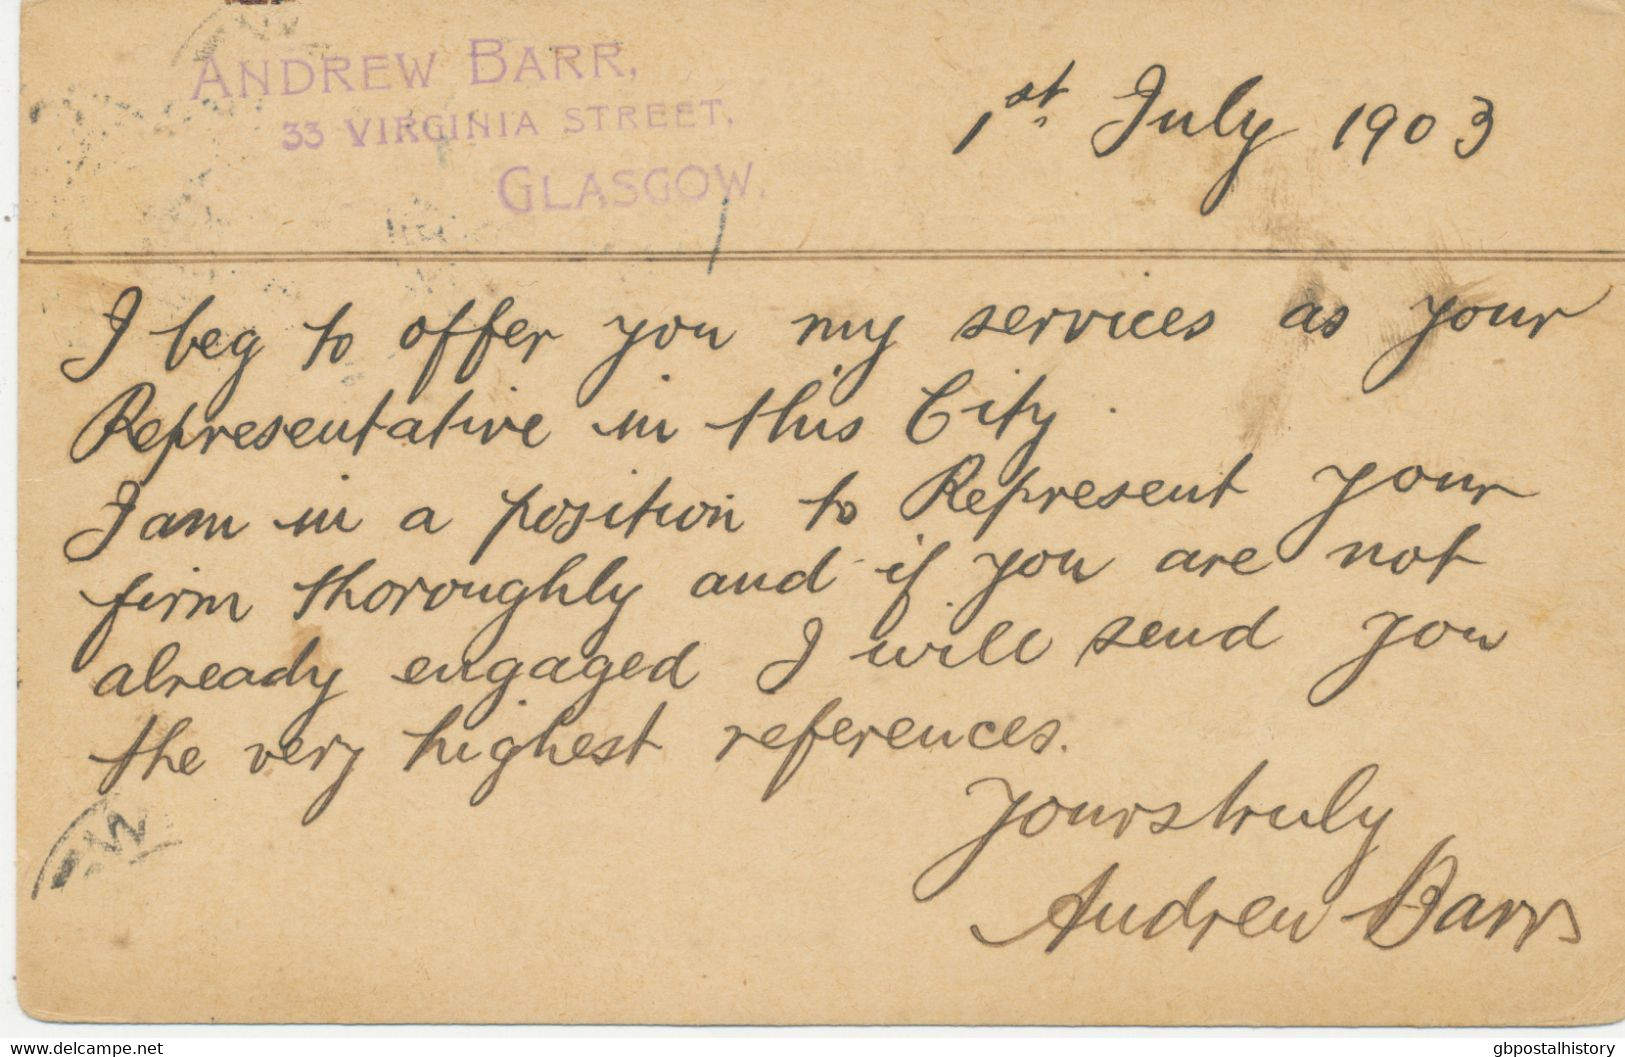 ANDREW BARR,
33 VIRGINIA STREET,
GLASGOW.
1st July 1903
I beg to offer you my services as your
Representative in this City.
I am in a position to Represent your
firm thoroughly and if you are not
already engaged I will send you
the very highest references.
Yours truly
Andrew Barr
delcampe.com
gbpostalhistory